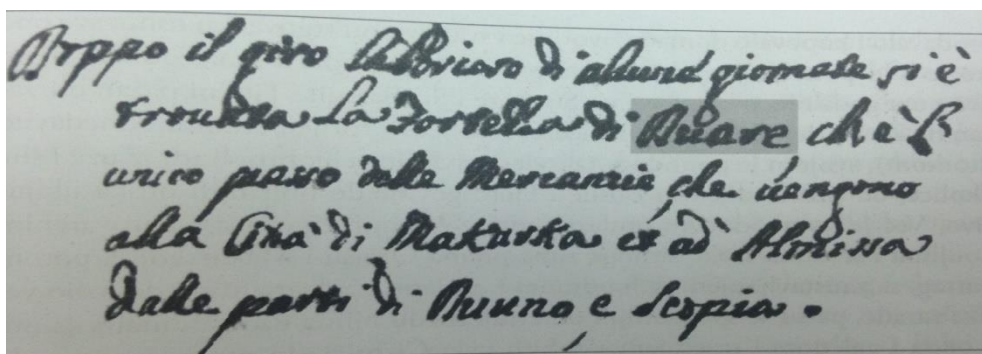 Doppo il giro laborioso di alcune giornate si è
trouata la Fortezza di Duare che è l'
unico passo delle Mercanzie che uengono
alla Cità di Makarska et ad Almissa
dalle parti di Duuno e Scopia.